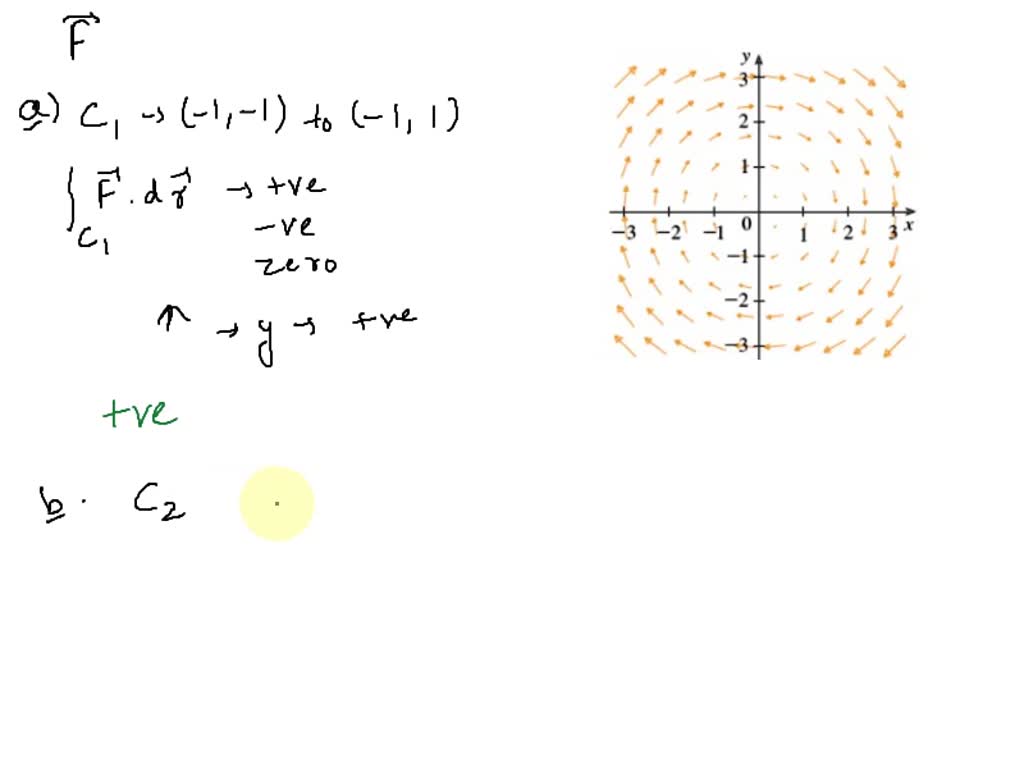 F
a) C1 → (-1,-1) to (-1, 1)
∫C1 F . d r → +ve
-ve
zero
↑ → y → +ve
+ve
b . C2
y
3
2
1
-3 -2 -1 0 1 2 3 x
-1
-2
-3